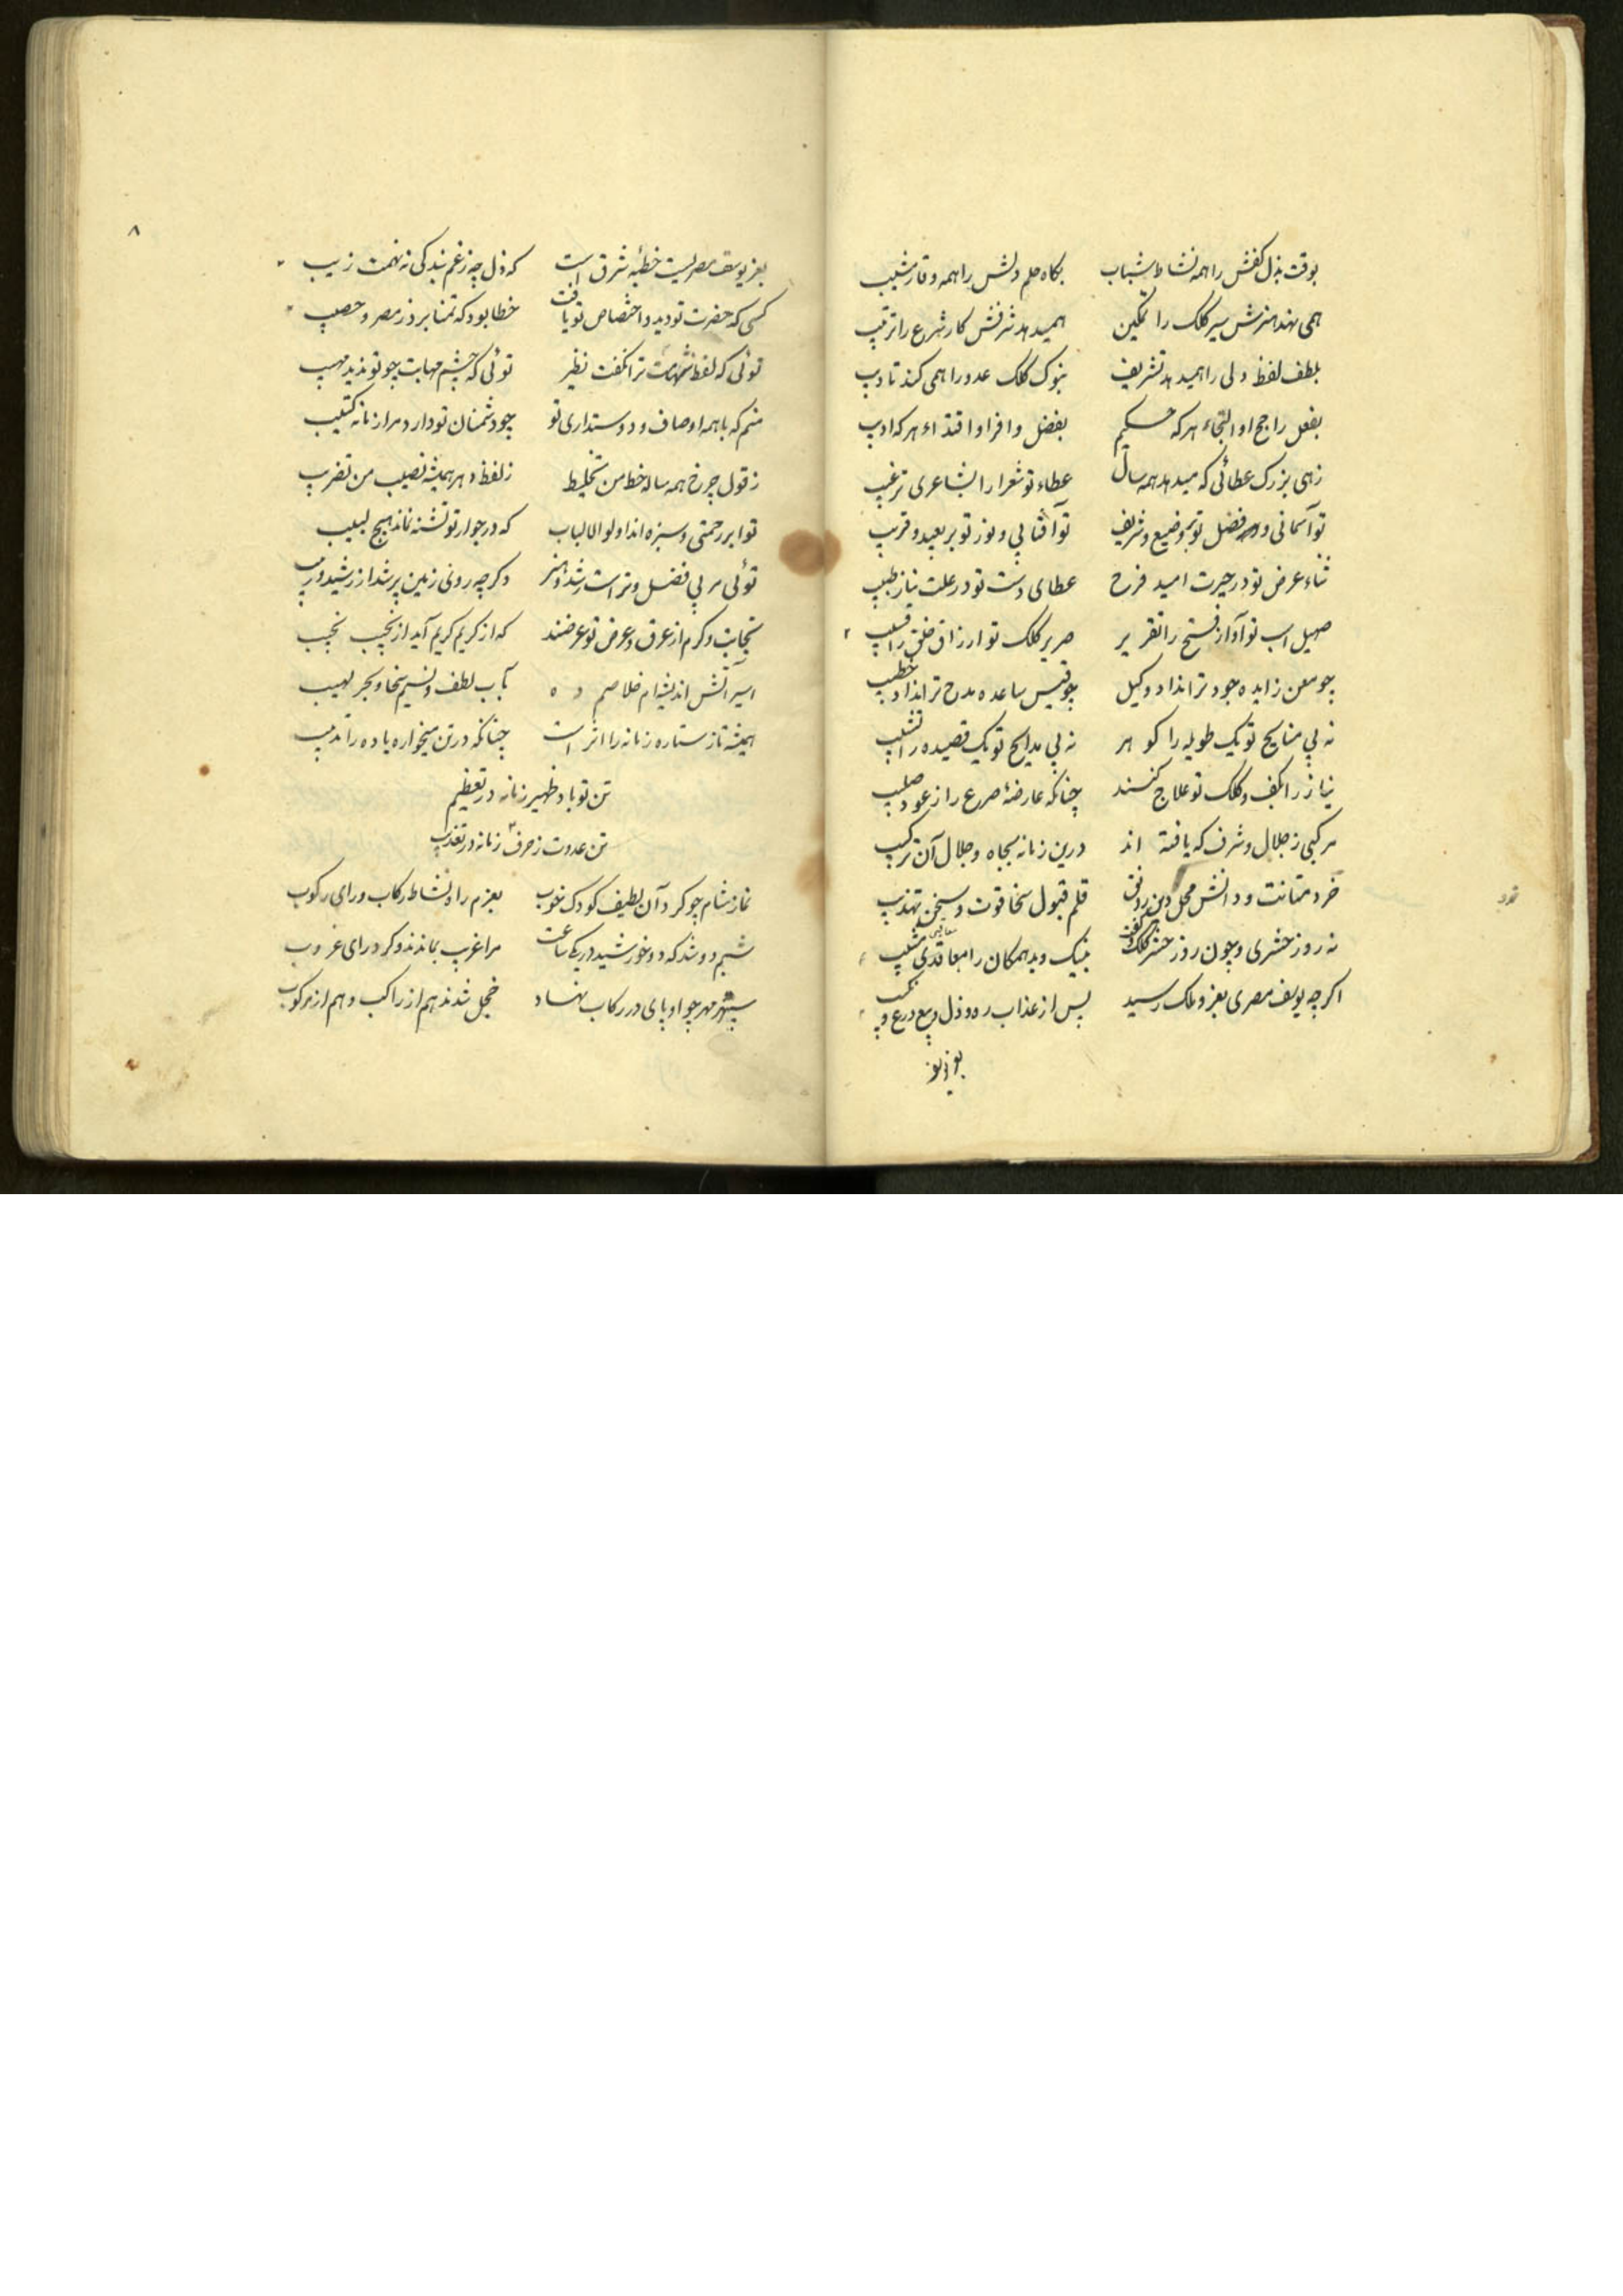 بوقت بذل کفش را همه نشاط شباب بگاه حلم دلش را همه وقار مشیب
همی نهد هنرش سیر کلک را تمکین همیدهد شرفش کار شرع را ترتیب
بلطف لفظ ولی را همیدهد تشریف بنوک کلک عدو را همی کند تادیب
بفعل راجح او التجاء هر که حکیم بفضل وافر او اقتداء هر که ادیب
زهی بزرک عطائی که میدهد همه سال عطاء تو شعرا را بشاعری ترغیب
تو آسمانی و فضل تو بر وضیع و شریف تو آفتابی و نور تو بر بعید و قریب
ثناء عرض تو در حیرت امید فرح عطای دست تو در علت نیاز طبیب
صهیل اسب تو آواز فتح را تقریر صریر کلک تو ارزاق خلق را
چو معن زایده جود ترا نداد وکیل چو قیس ساعده مدح ترا نداد خطیب
نه بی منایح تو یک طویله را کوهر نه بی مدایح تو یک قصیده را تشبیب
نیاز را بکف و کلک تو علاج کنند چنانکه عارضهٔ صرع را ز عود صلیب
مرکبی ز جلال و شرف که یافته اند درین زمانه بجاه و جلال آن ترکیب
خرد متانت و دانش محل دین رونق قلم قبول سخا قوت و سخن تهذیب
نه روز حشری و چون روز حشر کلک و کفت بنیک و بد همکان را معاقبی و مثیب
اکرچه یوسف مصری بعز و ملک رسید پس از عذاب ره و ذل بیع و
بعز یوسف
۸
بعز یوسف مصریست خطبه شرق است که ذل چه ز غم بندکی نه تهمت زیب
کسی که حضرت تو دید و اختصاص تو یافت خطا بود که تمنا برد ز مصر و خصیب
توئی که لفظ ترا نکفت نظیر توئی که چشم مهابت چو تو ندید مهیب
منم که با همه اوصاف و دوستداری تو چو دشمنان تو دارد مرا زمانه کئیب
ز قول چرخ همه ساله خط من تخلیط ز لفظ دهر همیشه نصیب من تضریب
تو ابر رحمتی و سبزه اند اولوالالباب که در جوار تو تشنه نماند هیچ لبیب
توئی مربی فضل و تراست رشد و هنر وکرچه روی زمین پر شد از رشید و ربیب
نجابت و کرم از عرق و عرض تو عرضند که از کریم کریم آید از نجیب نجیب
اسیر آتش اندیشه‌ام خلاصم ده بآب لطف و نسیم سخا و بحر لهیب
همیشه تا ز ستاره زمانه را اثر است چنانکه در تن میخواره باده را تدبیب
تن تو باد ظهیر زمانه در تعظیم
تن عدوت ز حرف زمانه در تعذیب
نماز شام چو کرد آن لطیف کودک خوب بعزم راه نشاط رکاب و رای رکوب
شبم دو شد که دو خورشید در یکی ساعت مرا غریب بماندند و کرد رای غروب
سپهر مهر چو او پای در رکاب نهاد خجل شدند هم از راکب و هم از مرکوب